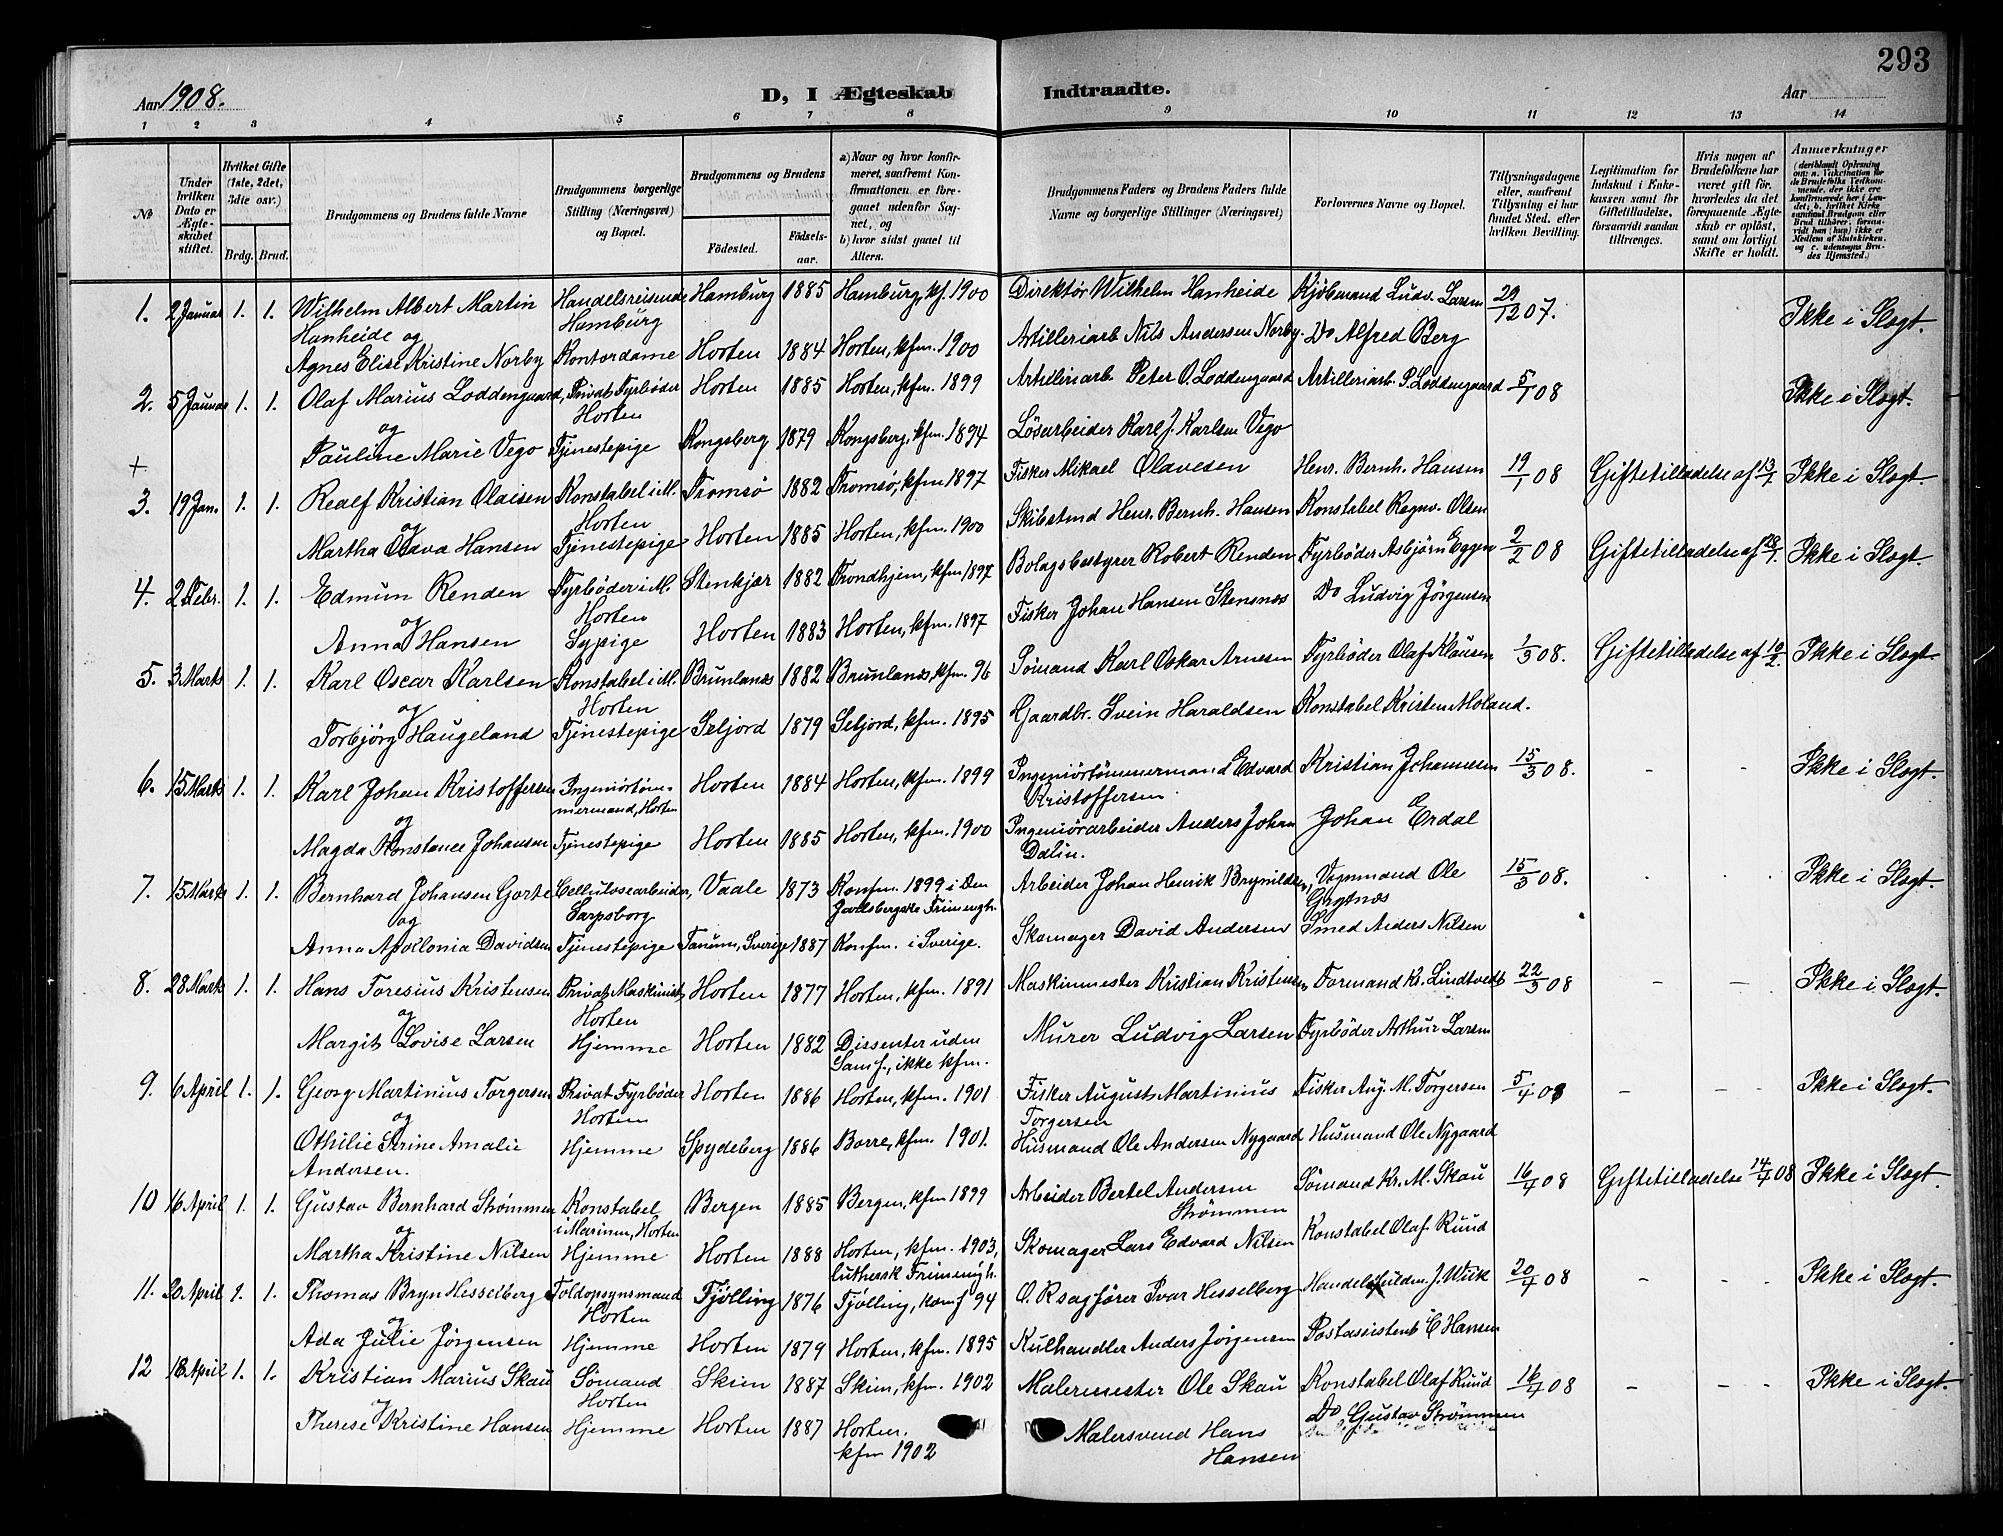 293
Aar 1908.
D, I Ægteskab Indtraadte.
Aar
1 2 3 4 5 6 7 8 9 10 11 12 13 14
№
Under hvilken Dato er Ægteskabet stiftet.
Hvilket Gifte (1ste, 2det, 3die osv.)
Brdg. Brud.
Brudgommens og Brudens fulde Navne
Brudgommens borgerlige Stilling (Næringsvei) og Bopæl.
Brudgommens og Brudens
Födested.
Födselsaar.
a) Naar og hvor konfirmeret, saafremt Konfirmationen er foregaaet udenfor Sognet, og
b) hvor sidst gaaet til Alters.
Brudgommens Faders og Brudens Faders fulde Navne og borgerlige Stillinger (Næringsvei)
Forlovernes Navne og Bopæl.
Tillysningsdagene eller, saafremt Tillysning ei har fundet Sted, efter hvilken Bevilling.
Legitimation for Indskud i Enkekassen samt for Giftetilladelse, forsaavidt saadan tiltrænges.
Hvis nogen af Brudefolkene har været gift för, hvorledes da det foregaaende Ægteskab er oplöst, samt om lovligt Skifte er holdt.
Anmerkninger
1. 2 Januar 1. 1. Wilhelm Albert Martin Hanheide og Handelsreisende Hamburg Hamburg 1885 Hamburg, kf. 1900 Direktör Wilhelm Hanheide Kjöbmand Ludv. Larsen 29/12 07. Ikke i Slægt.
Agnes Elise Kristine Norby Kontordame Horten 1884 Horten, kfm. 1900 Artilleriarb Nils Andersen Norby Do Alfred Berg
2. 5 Januar 1. 1. Olaf Marius Loddengaard, Privat Fyrböder Horten Horten 1885 Horten, kfm. 1899 Artilleriarb. Peter O. Loddengaard Artilleriarb. P. Loddengaard 5/1 08 Ikke i Slægt.
og Pauline Marie Vego Tjenestepige Kongsberg 1879 Kongsberg, kfm. 1894 Løsarbeider Karl J. Karlsen Vego
+
3. 19 Jan. 1. 1. Realf Kristian Olaisen Konstabel i M. Horten Tromsø 1882 Tromsø, kfm 1897 Fisker Mikael Olavesen Henr. Bernh. Hansen 19/1 08 Giftetilladelse af 13/1 Ikke i Slægt.
og Martha Olava Hansen Tjenestepige Horten 1885 Horten, kfm. 1900 Skibstmd Henr. Bernh. Hansen Konstabel Ragnv. Olsen
4. 2 Febr. 1. 1. Edmun Renden Fyrböder i M. Horten Stenkjær 1882 Trondhjem, kfm 1897 Bolagsbestyrer Robert Renden Fyrböder Asbjörn Eggen 2/2 08 Giftetilladelse af 28/1. Ikke i Slægt.
og Anna Hansen Sypige Horten 1883 Horten, kfm. 1897 Fisker Johan Hansen Stensnæs Do Ludvig Jörgensen
5. 3 Marts 1. 1. Karl Oscar Karlsen Konstabel i M. Horten Brunlanæs 1882 Brunlanæs, kfm. 96 Sømand Karl Oskar Arnesen Fyrböder Olaf Klausen 1/3 08. Giftetilladelse af 10/2. Ikke i Slægt.
og Torbjörg Haugeland Tjenestepige Seljord 1879 Seljord, kfm. 1895 Gaardbr. Svein Haraldsen Konstabel Kristen Moland.
6. 15 Marts 1. 1. Karl Johan Kristoffersen Ingeniörtömmermand, Horten Horten 1884 Horten, kfm. 1899 Ingeniörtömmermand Edvard Kristoffersen Kristian Johannesen 15/3 08. - - Ikke i Slægt.
og Magda Konstance Johansen Tjenestepige Horten 1885 Horten, kfm. 1900 Ingeniörarbeider Anders Johan Dalin. Johan Erdal
7. 15 Marts 1. 1. Bernhard Johansen Gorte Cellulosearbeider, Sarpsborg Vaale 1873 Konfm. 1899 i Den Jarlsbergske Frimengh. Arbeider Johan Henrik Brynildsen, Vognmand Ole Grytnæs 15/3 08. Ikke i Slægt.
og Anna Apollonia Davidsen Tjenestepige Tanum, Sverige 1887 Konfm. i Sverige. Skomager David Andersen Smed Anders Nilsen
8. 28 Marts 1. 1. Hans Toresius Kristensen Privat Maskinist Horten Horten 1877 Horten, kfm. 1891 Maskinmester Kristian Kristensen Formand Kr. Lindtvedt 22/3 08 - - Ikke i Slægt.
og Margit Lovise Larsen Hjemme Horten 1882 Dissenter uden Samf., ikke kfm. Murer Ludvig Larsen Fyrböder Arthur Larsen
9. 6 April 1. 1. Georg Martinius Torgersen Privat Fyrböder Horten Horten 1886 Horten, kfm. 1901 Fisker August Martinius Torgersen Fisker Aug. M. Torgersen 5/4 08 - - Ikke i Slægt.
og Othilie Strine Amalie Andersen. Hjemme Spydeberg 1886 Borre, kfm. 1901. Husmand Ole Andersen Nygaard Husmand Ole Nygaard
10 16 April 1. 1. Gustav Bernhard Strømmen Konstabel i Marinen, Horten Bergen 1885 Bergen, kfm 1899 Arbeider Bertel Andersen Strømmen Sömand Kr. M. Skau 16/4 08 Giftetilladelse 14/4 08 Ikke i Slægt.
og Martha Kristine Nilsen Hjemme Horten 1888 Horten, kfm. 1903, luthersk Frimengh. Skomager Lars Edvard Nilsen Konstabel Olaf Ruud
11. 20 April 1. 1. Thomas Bryn Hesselberg Toldopsynsmand Horten Tjölling 1876 Tjölling, konf 94 O. R sagförer Ivar Hesselberg Handelsfuldm. J. Wiik 20/4 08 - - Ikke i Slægt.
og Ada Julie Jörgensen Hjemme Horten 1879 Horten, kfm. 1895 Kulhandler Anders Jörgensen Postassistent C Hansen
12 18 April 1. 1. Kristian Marius Skau Sömand Horten Skien 1887 Skien, kfm. 1902 Malermester Ole Skau Konstabel Olaf Ruud 16/4 08 - - Ikke i Slægt.
og Therese Kristine Hansen Hjemme Horten 1887 Horten. kfm 1902 Malersvend Hans Hansen Do Gustav Strømmen